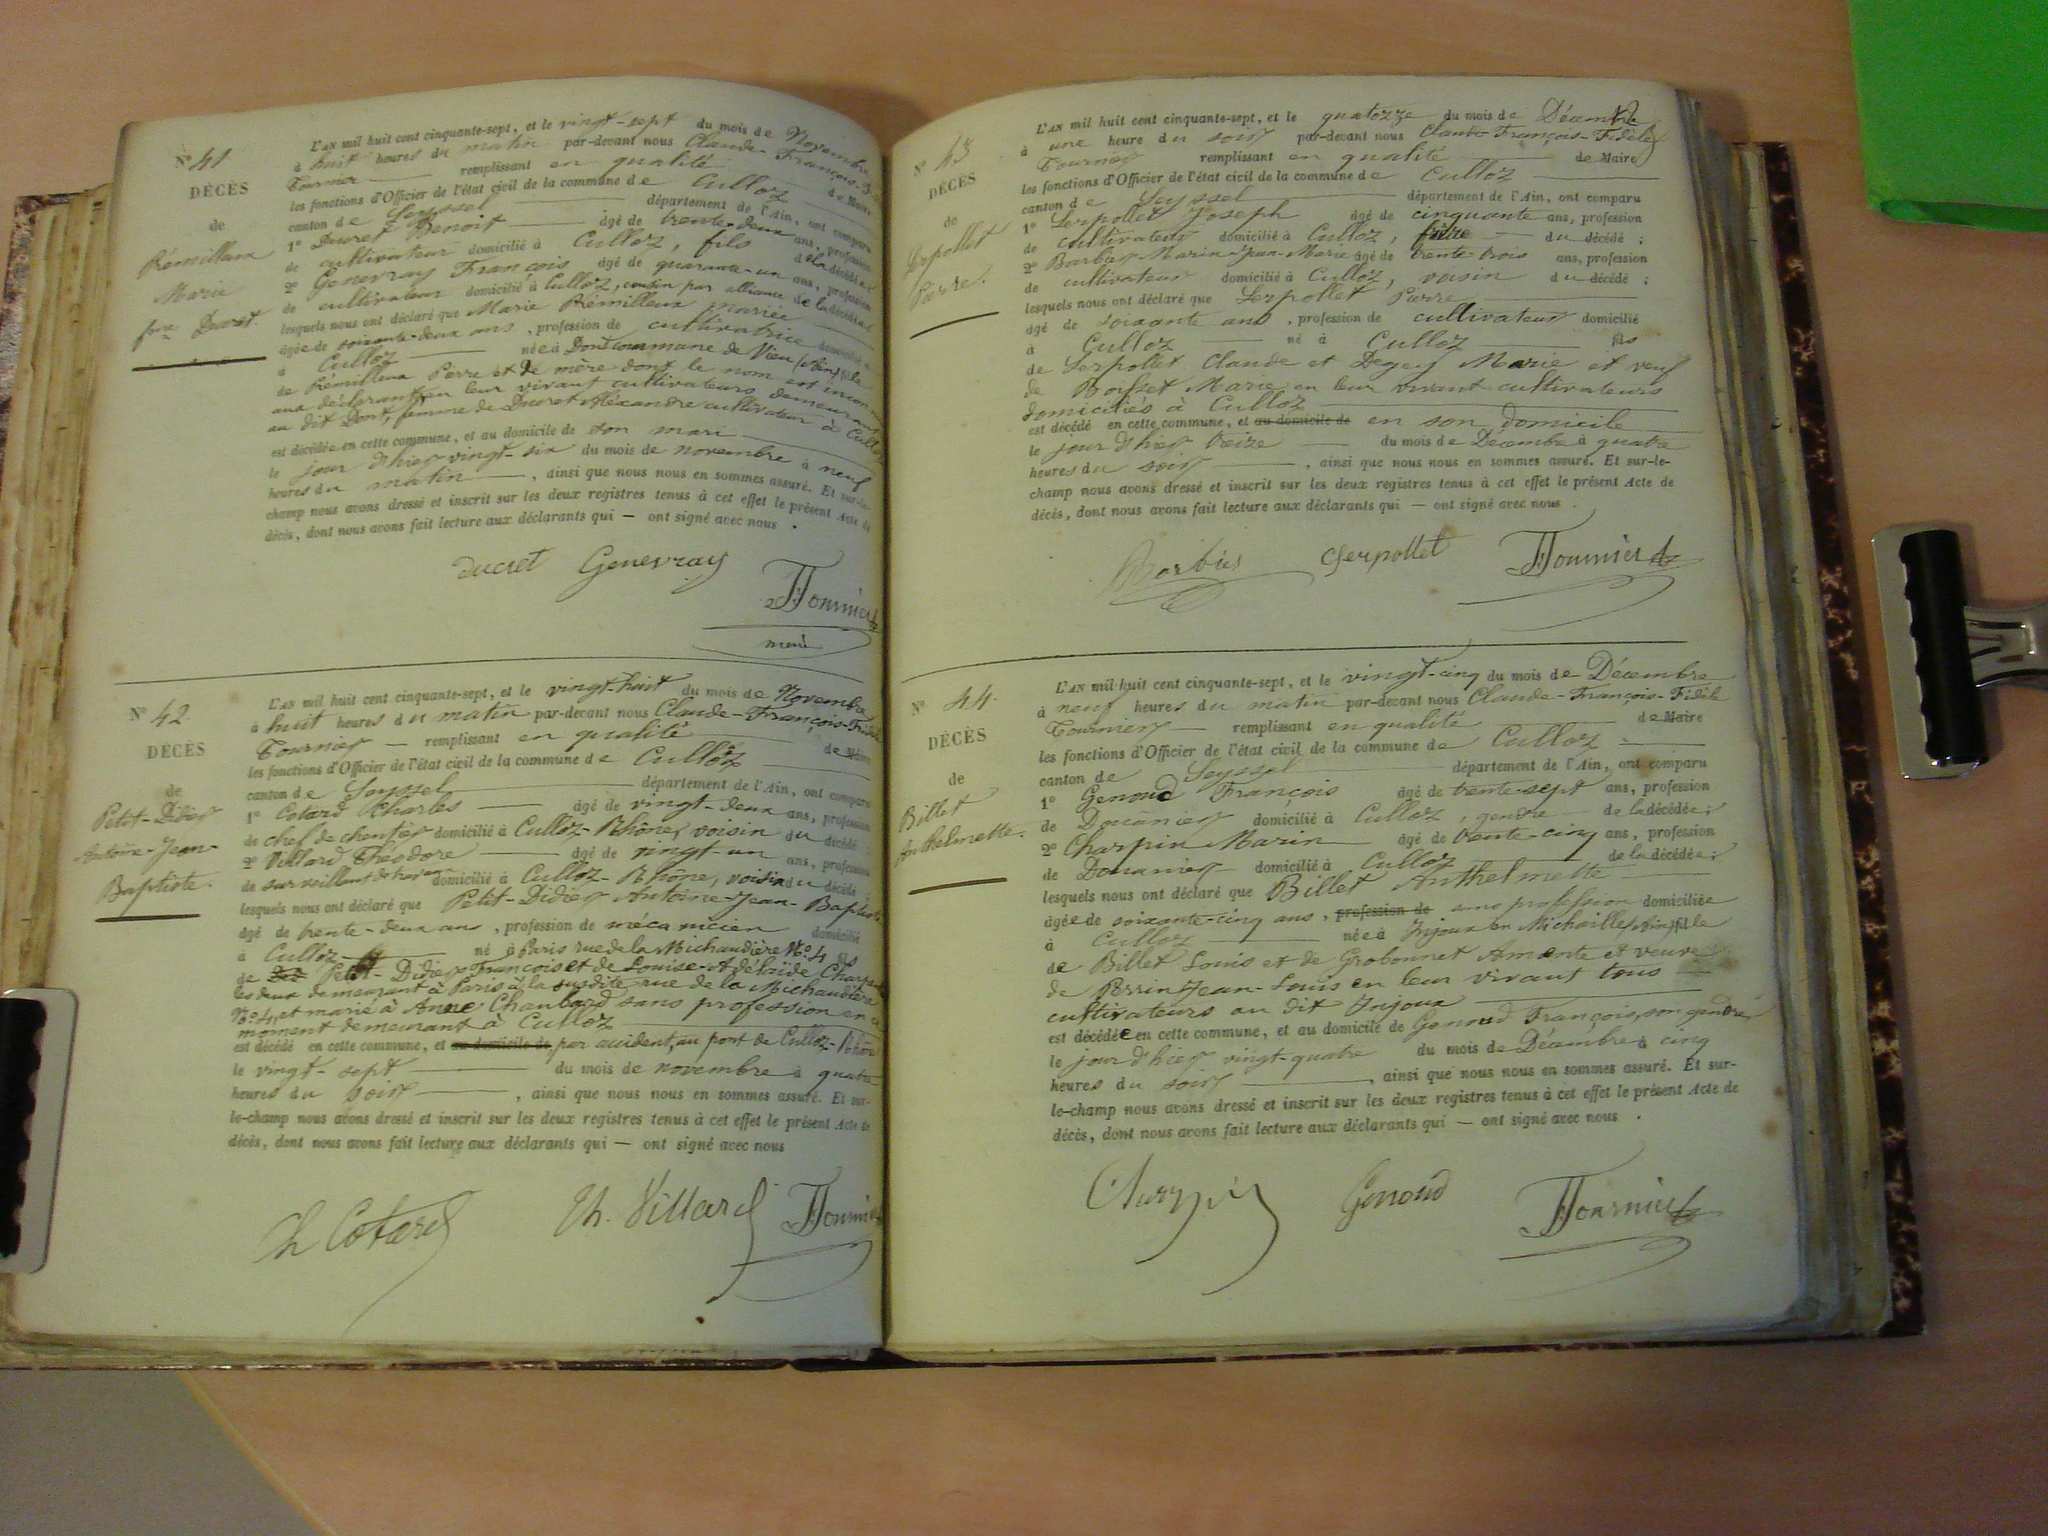 N° 41
DÉCÈS
de
Rémilleux
Marie
fme Ducret.
L'AN mil huit cent cinquante-sept, et le vingt-sept du mois de Novembre
à huit heures du matin par-devant nous Claude-François-
Tournier remplissant en qualité de Maire
les fonctions d'Officier de l'état civil de la commune de Culloz
canton de Seyssel département de l'Ain, ont comparu
1° Ducret Benoit âgé de trente-deux ans, profession
de cultivateur domicilié à Culloz, fils de la décédée
2° Genevray François âgé de quarante-un ans, profession
de cultivateur domicilié à Culloz, cousin par alliance de la décédée
lesquels nous ont déclaré que Marie Rémilleux mariée
âgée de soixante-deux ans, profession de cultivatrice domiciliée
à Culloz née à Dont commune de Vieu (Ain) fille
de Rémilleux Pierre et de mère dont le nom est inconnu
aux déclarants en leur vivant cultivateurs demeurant
au dit Dont, femme de Ducret Aléxandre cultivateur à Culloz
est décédée en cette commune, et au domicile de son mari
le jour d'hier vingt-six du mois de novembre à neuf
heures du matin, ainsi que nous nous en sommes assuré. Et sur-le-
champ nous avons dressé et inscrit sur les deux registres tenus à cet effet le présent Acte de
décès, dont nous avons fait lecture aux déclarants qui — ont signé avec nous.
ducret Genevray
Tournier
N° 42
DÉCÈS
de
Petit-Didier
Antoine-Jean-
Baptiste.
L'AN mil huit cent cinquante-sept, et le vingt-huit du mois de Novembre
à huit heures du matin par-devant nous Claude-François-Fidèle
Tournier — remplissant en qualité de Maire
les fonctions d'Officier de l'état civil de la commune de Culloz
canton de Seyssel département de l'Ain, ont comparu
1° Cotard Charles âgé de vingt-deux ans, profession
de chef de chantier domicilié à Culloz-Rhône, voisin du décédé;
2° Villard Théodore âgé de vingt-un ans, profession
de surveillant de travaux domicilié à Culloz-Rhône, voisin du décédé;
lesquels nous ont déclaré que Petit-Didier Antoine-Jean-Baptiste
âgé de trente-deux ans, profession de mécanicien domicilié
à Culloz né à Paris rue de la Michaudière N°. 4 fils
de Petit-Didier François et de Louise-Adélaïde
les deux demeurant à Paris à la susdite rue de la Michaudière
N°. 4, et marié à Anne Chanbard sans profession en ce
moment demeurant à Culloz
est décédé en cette commune, et au domicile de par accident, au pont de Culloz-Rhône
le vingt-sept du mois de novembre à quatre
heures du soir, ainsi que nous nous en sommes assuré. Et sur-
le-champ nous avons dressé et inscrit sur les deux registres tenus à cet effet le présent Acte de
décès, dont nous avons fait lecture aux déclarants qui — ont signé avec nous
Ch Cotard Th. Villard Tournier
N° 43
DÉCÈS
de
Serpollet
Pierre.
L'AN mil huit cent cinquante-sept, et le quatorze du mois de Décembre
à une heure du soir par-devant nous Claude François-Fidèle
Tournier remplissant en qualité de Maire
les fonctions d'Officier de l'état civil de la commune de Culloz
canton de Seyssel département de l'Ain, ont comparu
1° Serpollet Joseph âgé de cinquante ans, profession
de cultivateur domicilié à Culloz, frère du décédé;
2° Barbier Marin-Jean-Marie âgé de trente trois ans, profession
de cultivateur domicilié à Culloz, voisin du décédé;
lesquels nous ont déclaré que Serpollet Pierre
âgé de soixante ans, profession de cultivateur domicilié
à Culloz né à Culloz fils
de Serpollet Claude et Marie et veuf
de Marie en leur vivant cultivateurs
domiciliés à Culloz
est décédé en cette commune, et au domicile de en son domicile
le jour d'hier treize du mois de Décembre à quatre
heures du soir, ainsi que nous nous en sommes assuré. Et sur-le-
champ nous avons dressé et inscrit sur les deux registres tenus à cet effet le présent Acte de
décès, dont nous avons fait lecture aux déclarants qui — ont signé avec nous.
Barbier Serpollet Tournier
N° 44.
DÉCÈS
de
Billet
Anthelmette.
L'AN mil huit cent cinquante-sept, et le vingt-cinq du mois de Décembre
à neuf heures du matin par-devant nous Claude-François-Fidèle
Tournier — remplissant en qualité de Maire
les fonctions d'Officier de l'état civil de la commune de Culloz
canton de Seyssel département de l'Ain, ont comparu
1° Genoud François âgé de trente-sept ans, profession
de Douanier domicilié à Culloz, gendre de la décédée;
2° Charpin Marin âgé de trente-cinq ans, profession
de Douanier domicilié à Culloz de la décédée;
lesquels nous ont déclaré que Billet Anthelmette
âgée de soixante-cinq ans, profession de sans profession domiciliée
à Culloz née à Injoux en Michaille (Ain) fille
de Billet Louis et de Grobonnet Amante et veuve
de Perrin Jean-Louis en leur vivant tous
cultivateurs au dit Injoux
est décédée en cette commune, et au domicile de Genoud François, son gendre,
le jour d'hier vingt-quatre du mois de Décembre à cinq
heures du soir, ainsi que nous nous en sommes assuré. Et sur-
le-champ nous avons dressé et inscrit sur les deux registres tenus à cet effet le présent Acte de
décès, dont nous avons fait lecture aux déclarants qui — ont signé avec nous.
Charpin Genoud Tournier